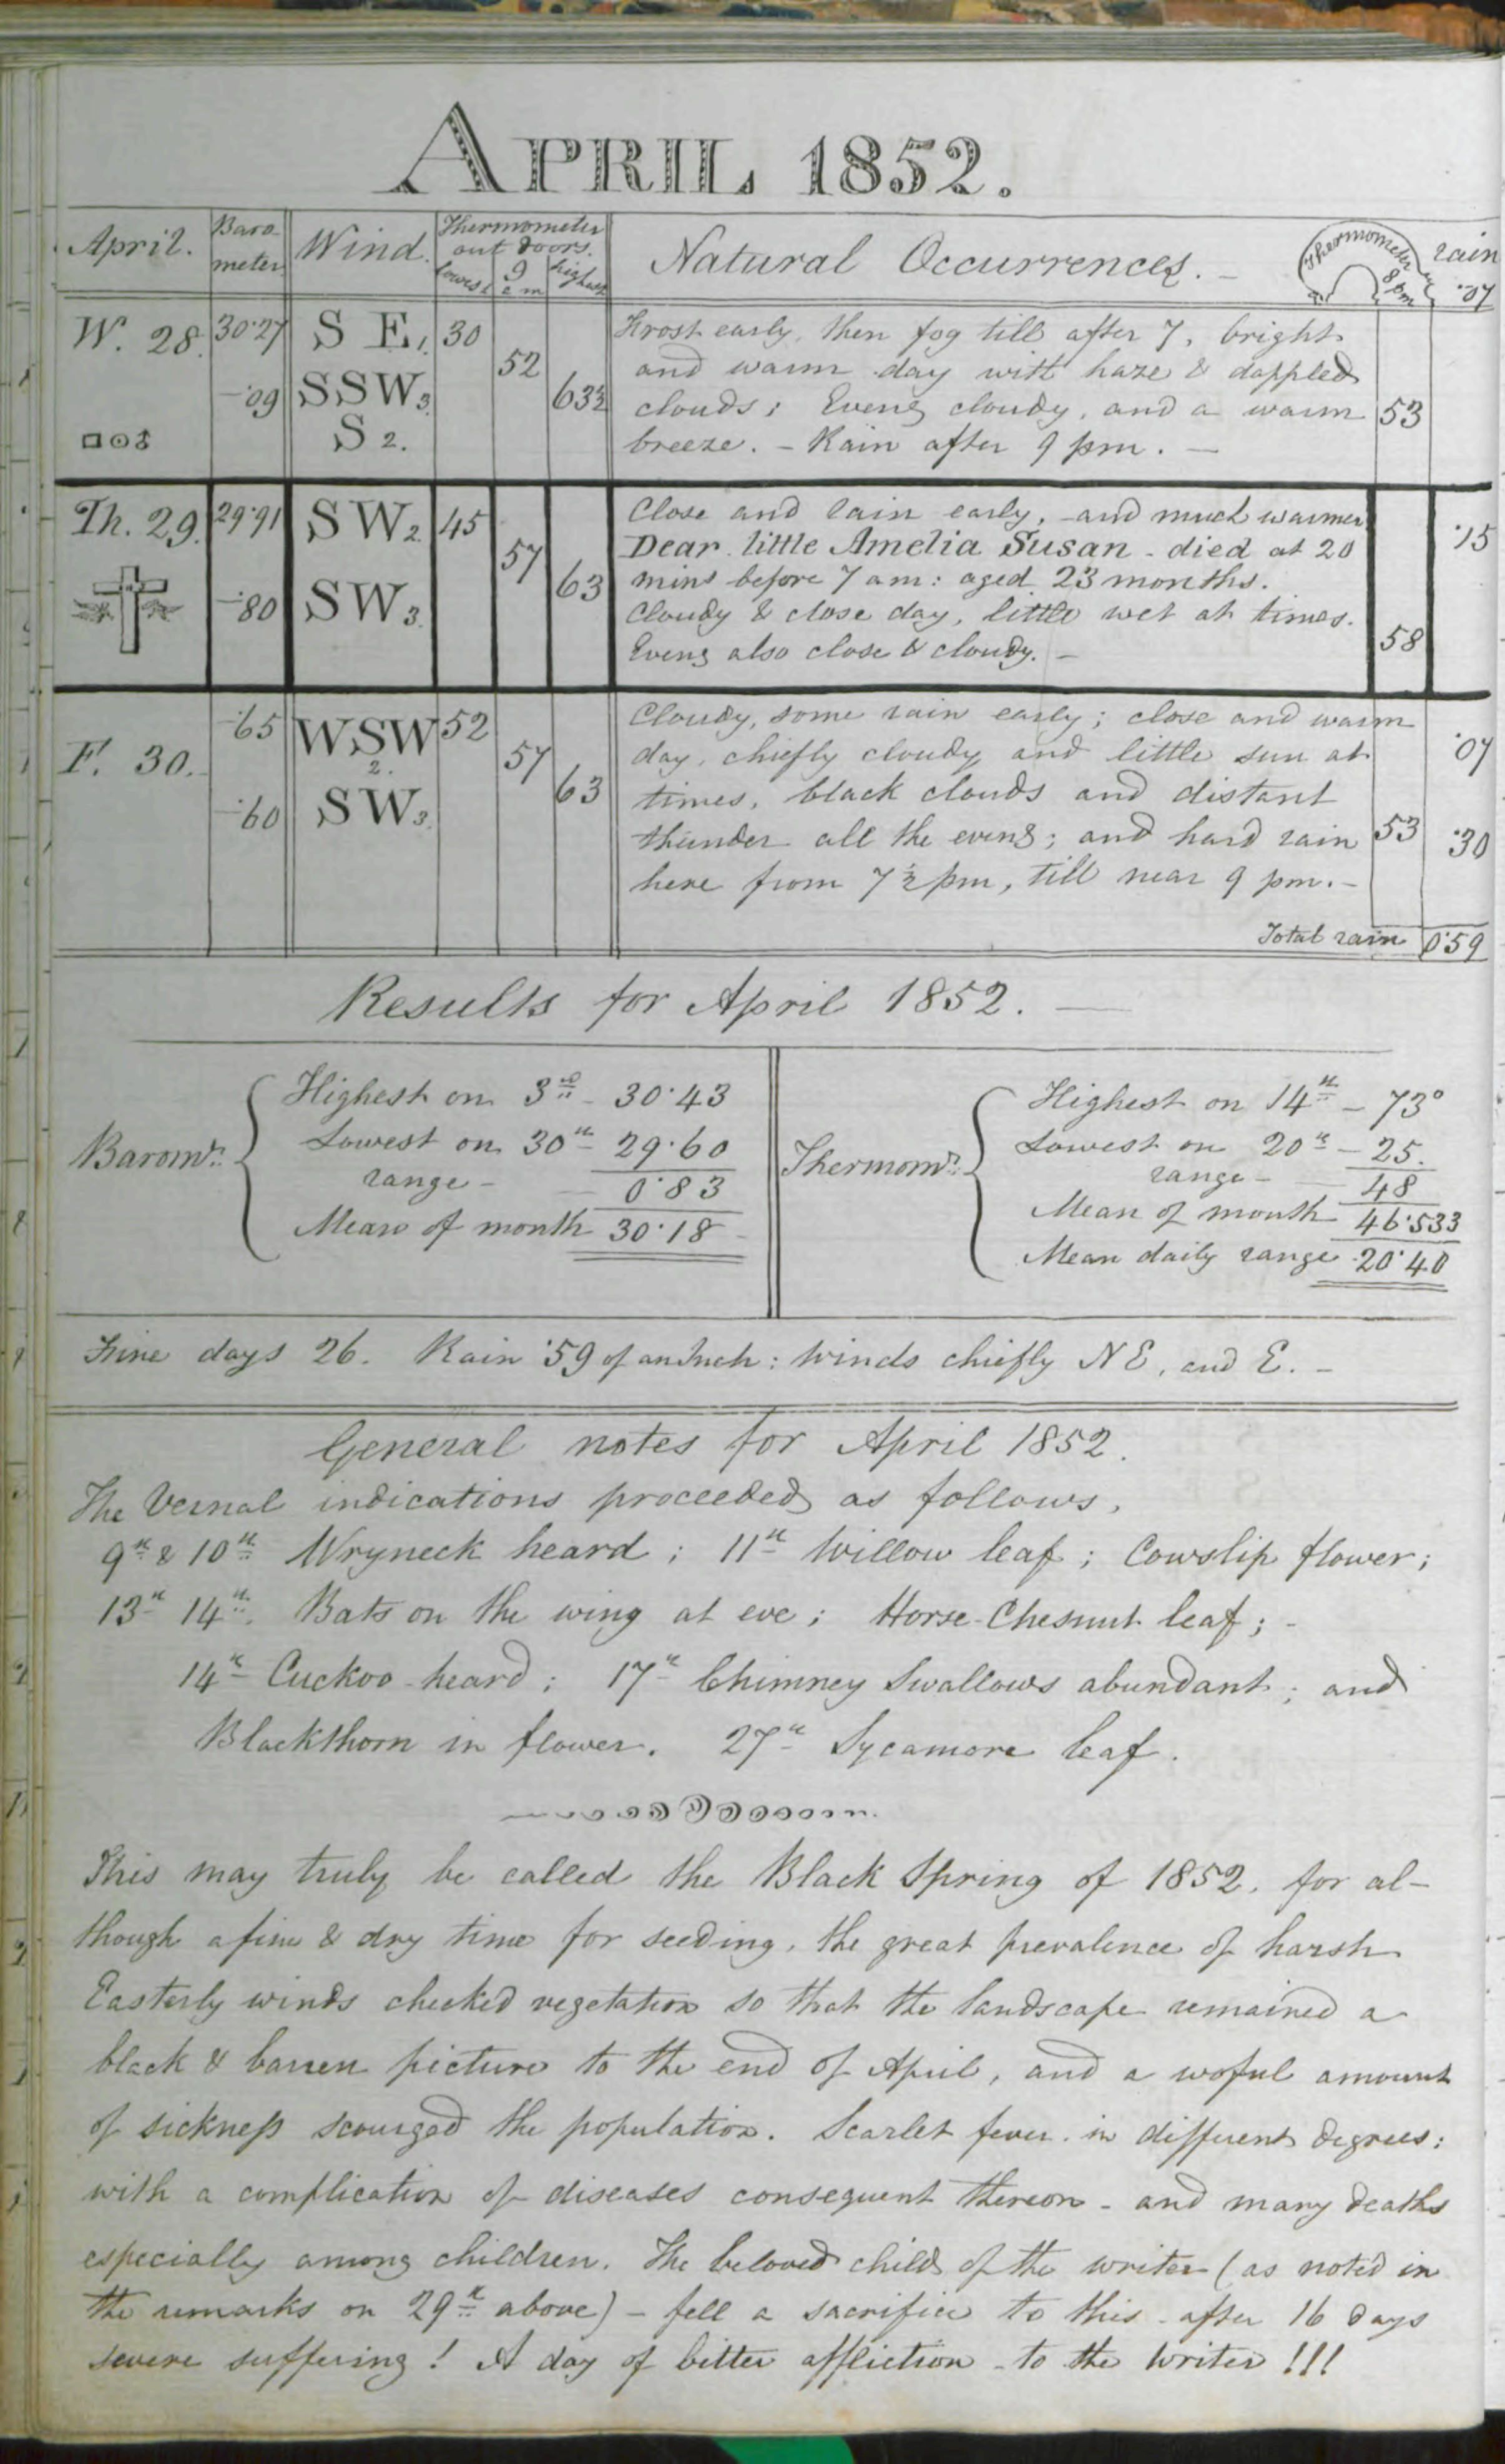 APRIL 1852.
April. Barometer Wind. Thermometer out doors. lowest 9 a m highest Natural Occurrences. Thermometer 8 pm rain ·07
W. 28. 30·27 S E 1. 30 Frost early, then fog till after 7, bright
52 and warm day with haze & dappled
—·09 SSW 3. 63½ clouds; Eveng cloudy, and a warm 53
□⊙♂ S 2. breeze. – Rain after 9 pm. —
Th. 29. 29·91 SW 2. 45 Close and rain early, and much warmer ·15
57 Dear little Amelia Susan - died at 20
—·80 SW 3. 63 mins before 7 am: aged 23 months.
Cloudy & close day, little wet at times.
Eveng also close & cloudy. — 58
—·65 WSW 2. 52 Cloudy, some rain early; close and warm
F. 30. 57 day, chiefly cloudy and little sun at ·07
—·60 SW 3. 63 times, black clouds and distant
thunder all the eveng; and hard rain 53 ·30
here from 7½ pm, till near 9 pm. –
Total rain 0·59
Results for April 1852. —
Baromr. Highest on 3rd - 30·43
Lowest on 30th - 29·60
range - — 0·83
Mean of month 30·18
Thermomr. Highest on 14th - 73°
Lowest on 20th - 25.
range - — 48
Mean of month 46·533
Mean daily range 20·40
Fine days 26. Rain ·59 of an Inch: Winds chiefly N E, and E. –
General notes for April 1852.
The Vernal indications proceeded as follows,
9th & 10th Wryneck heard; 11th Willow leaf; Cowslip flower;
13th 14th. Bats on the wing at eve; Horse-Chesnut leaf; -
14th Cuckoo heard; 17th Chimney Swallows abundant; and
Blackthorn in flower. 27th Sycamore leaf.
This may truly be called the Black Spring of 1852, for al-
though a fine & dry time for seeding, the great prevalence of harsh
Easterly winds checked vegetation so that the landscape remained a
black & barren picture to the end of April, and a woful amount
of sickness scourged the population. Scarlet fever in different degrees:
with a complication of diseases consequent thereon - and many deaths
especially among children. The beloved child of the writer (as noted in
the remarks on 29th above) - fell a sacrifice to this - after 16 days
severe suffering! A day of bitter affliction - to the Writer!!!